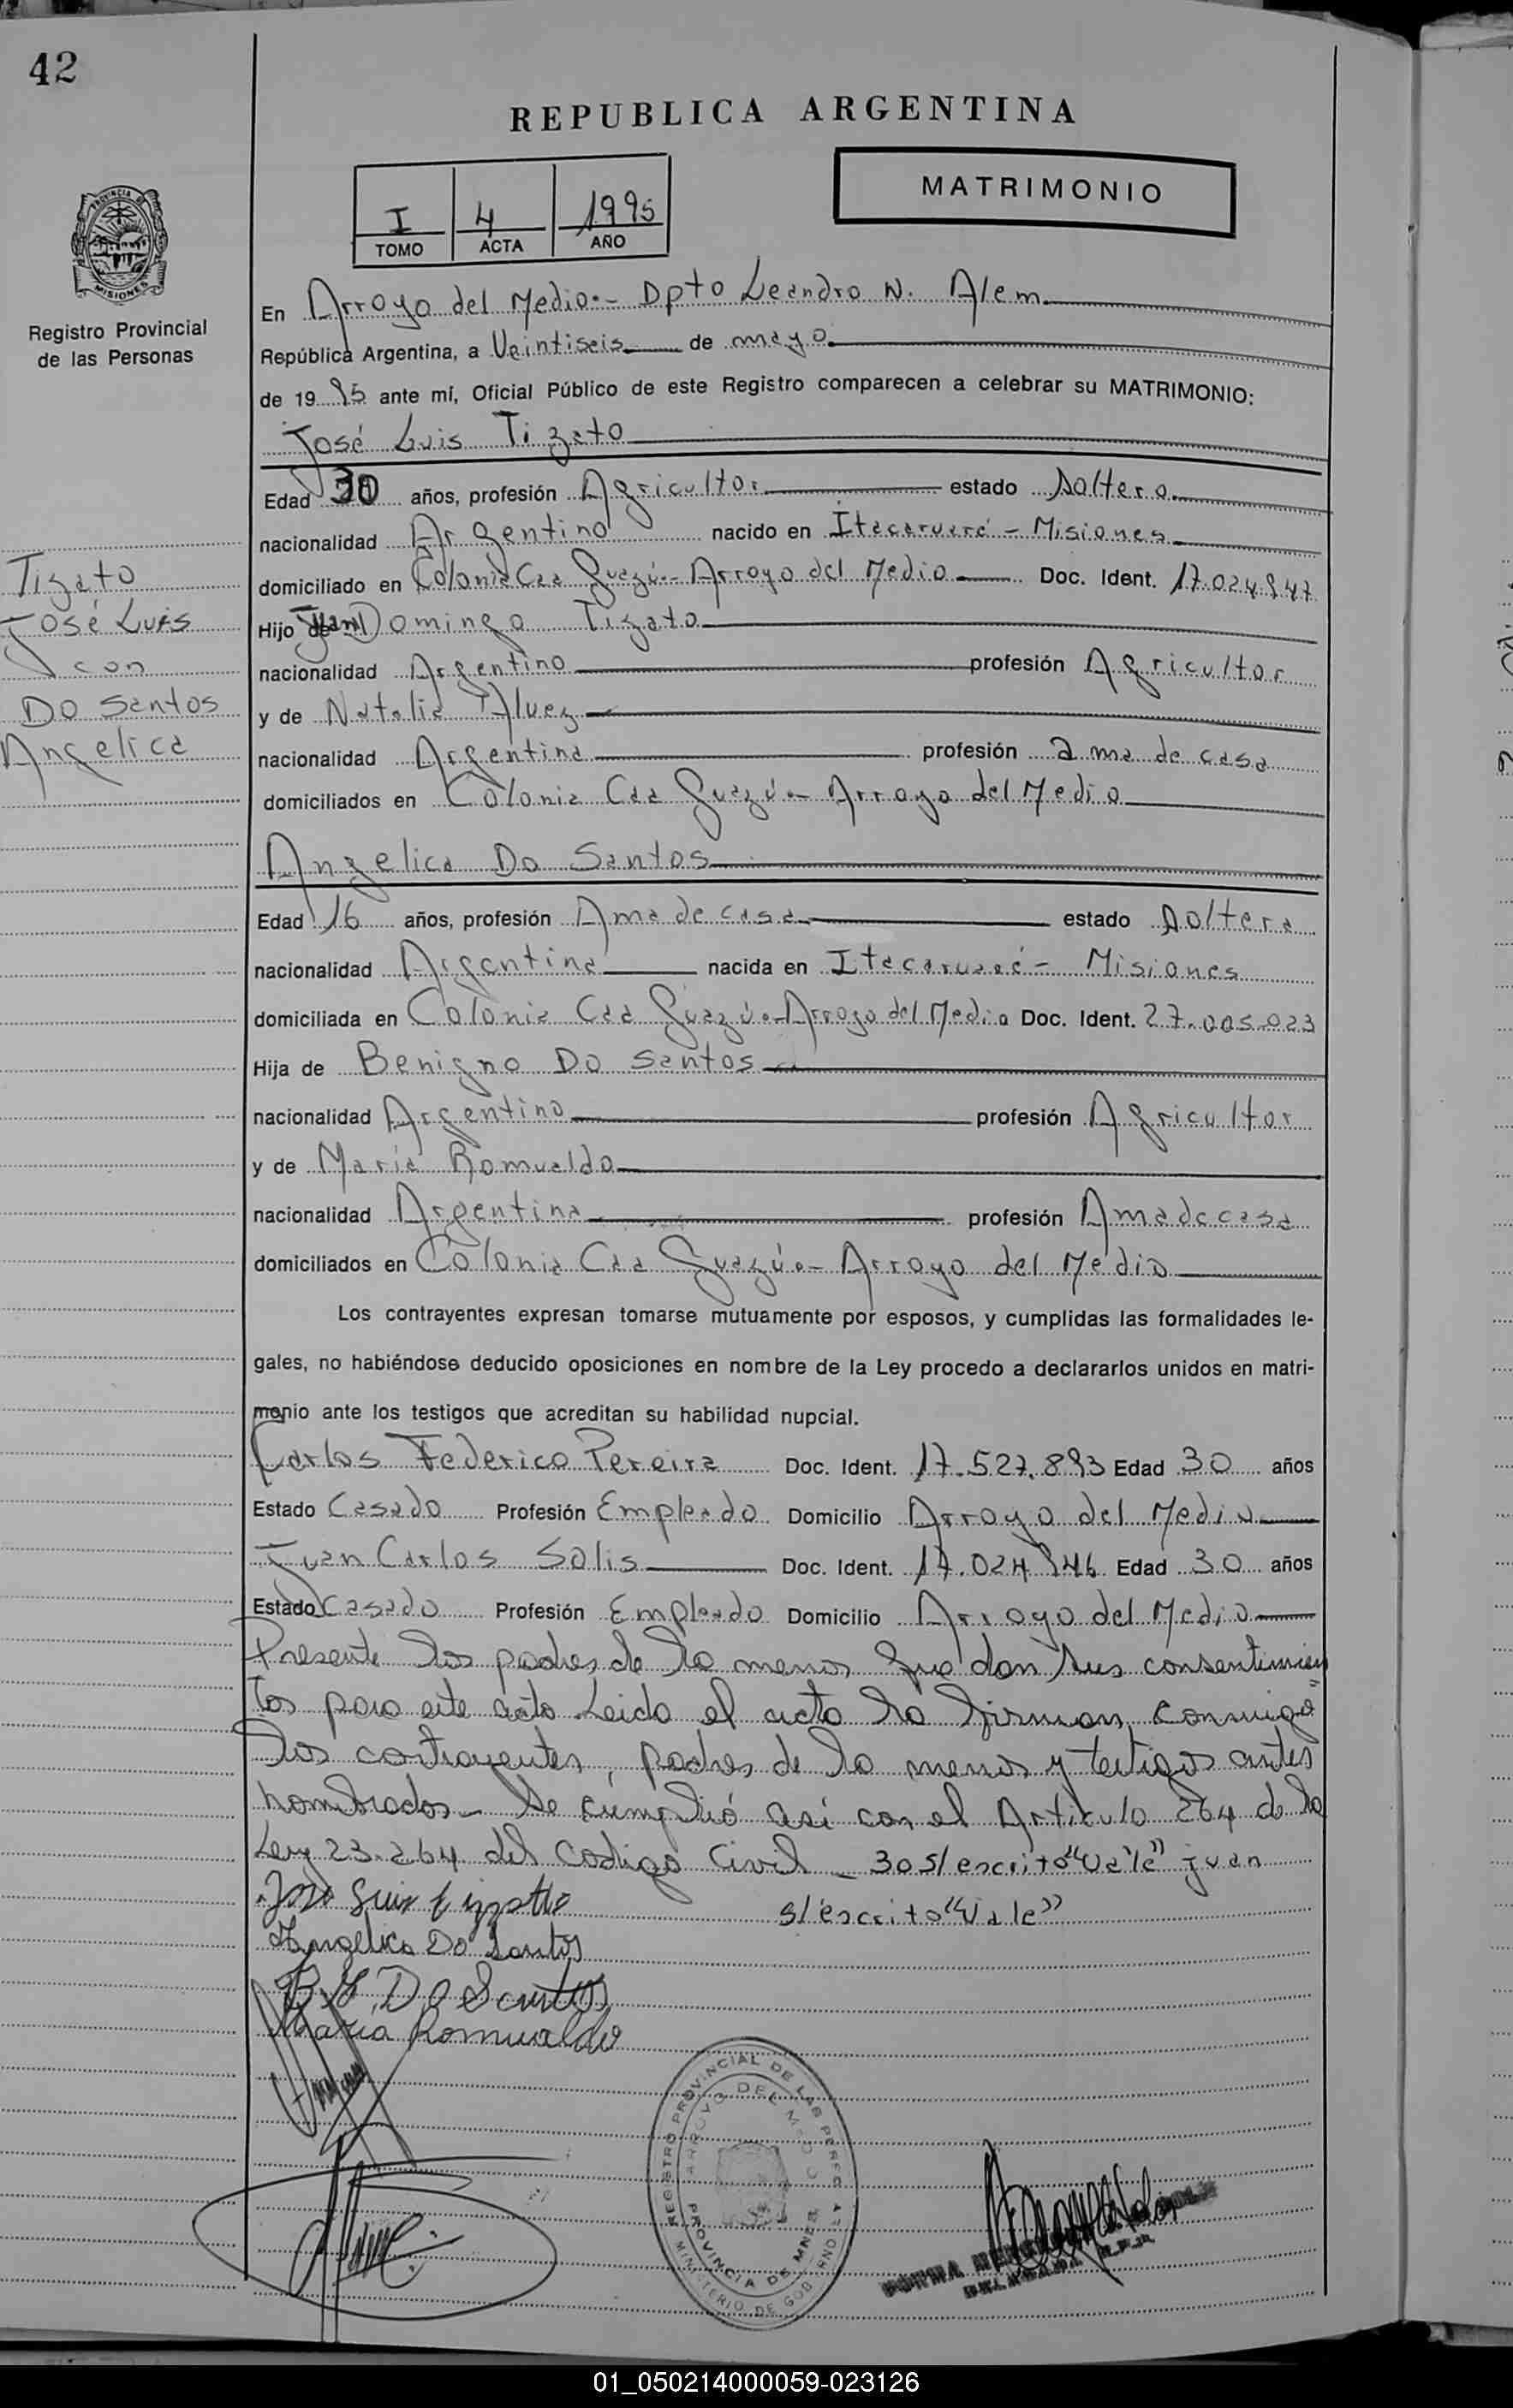 42
REPUBLICA ARGENTINA
I 4 1995
TOMO ACTA AÑO
MATRIMONIO
PROVINCIA DE
MISIONES
Registro Provincial
de las Personas
En Arroyo del Medio.- Dpto Leandro N. Alem
República Argentina, a Veintiseis de mayo
de 19 95 ante mí, Oficial Público de este Registro comparecen a celebrar su MATRIMONIO:
José Luis Tizato
Edad 30 años, profesión Agricultor estado Soltero
nacionalidad Argentino nacido en Itacaruaré - Misiones
domiciliado en Colonia Caa Guazú.- Arroyo del Medio Doc. Ident. 17.024.947
Hijo de Juan Domingo Tizato
nacionalidad Argentino profesión Agricultor
y de Natalia Alvez
nacionalidad Argentina profesión ama de casa
domiciliados en Colonia Caa Guazú.- Arroyo del Medio
Tizato
José Luis
con
Do Santos
Angelica
Angelica Do Santos
Edad 16 años, profesión Ama de casa estado Soltera
nacionalidad Argentina nacida en Itacaruaré - Misiones
domiciliada en Colonia Caa Guazú.- Arroyo del Medio Doc. Ident. 27.005.023
Hija de Benigno Do Santos
nacionalidad Argentino profesión Agricultor
y de Maria Romualdo
nacionalidad Argentina profesión Ama de casa
domiciliados en Colonia Caa Guazú.- Arroyo del Medio
Los contrayentes expresan tomarse mutuamente por esposos, y cumplidas las formalidades le-
gales, no habiéndose deducido oposiciones en nombre de la Ley procedo a declararlos unidos en matri-
monio ante los testigos que acreditan su habilidad nupcial.
Carlos Federico Pereira Doc. Ident. 17.527.893 Edad 30 años
Estado Casado Profesión Empleado Domicilio Arroyo del Medio
Juan Carlos Solis Doc. Ident. 17.024.946 Edad 30 años
Estado Casado Profesión Empleado Domicilio Arroyo del Medio
Presente los padres de la menor que dan sus consentimien
tos para este acto. Leida el acta la firman conmigo
los contrayentes, padres de la menor y testigos antes
nombrados - Se cumplió así con el Articulo 264 de la
Ley 23.264 del Codigo Civil - 30 s/escrito "Vale" juan
s/escrito "Vale"
José Luis Tizatto
Angélica Do Santos
B. Do Santos
Maria Romualdo
REGISTRO PROVINCIAL DE LAS PERSONAS
ARROYO DEL MEDIO
PROVINCIA DE MNES
MINISTERIO DE GOBIERNO
NORMA
01_050214000059-023126